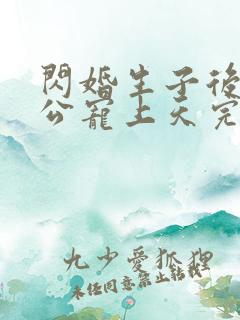 閃婚生子後
公寵上天完
九少愛狐狸
未任同意禁止轉載